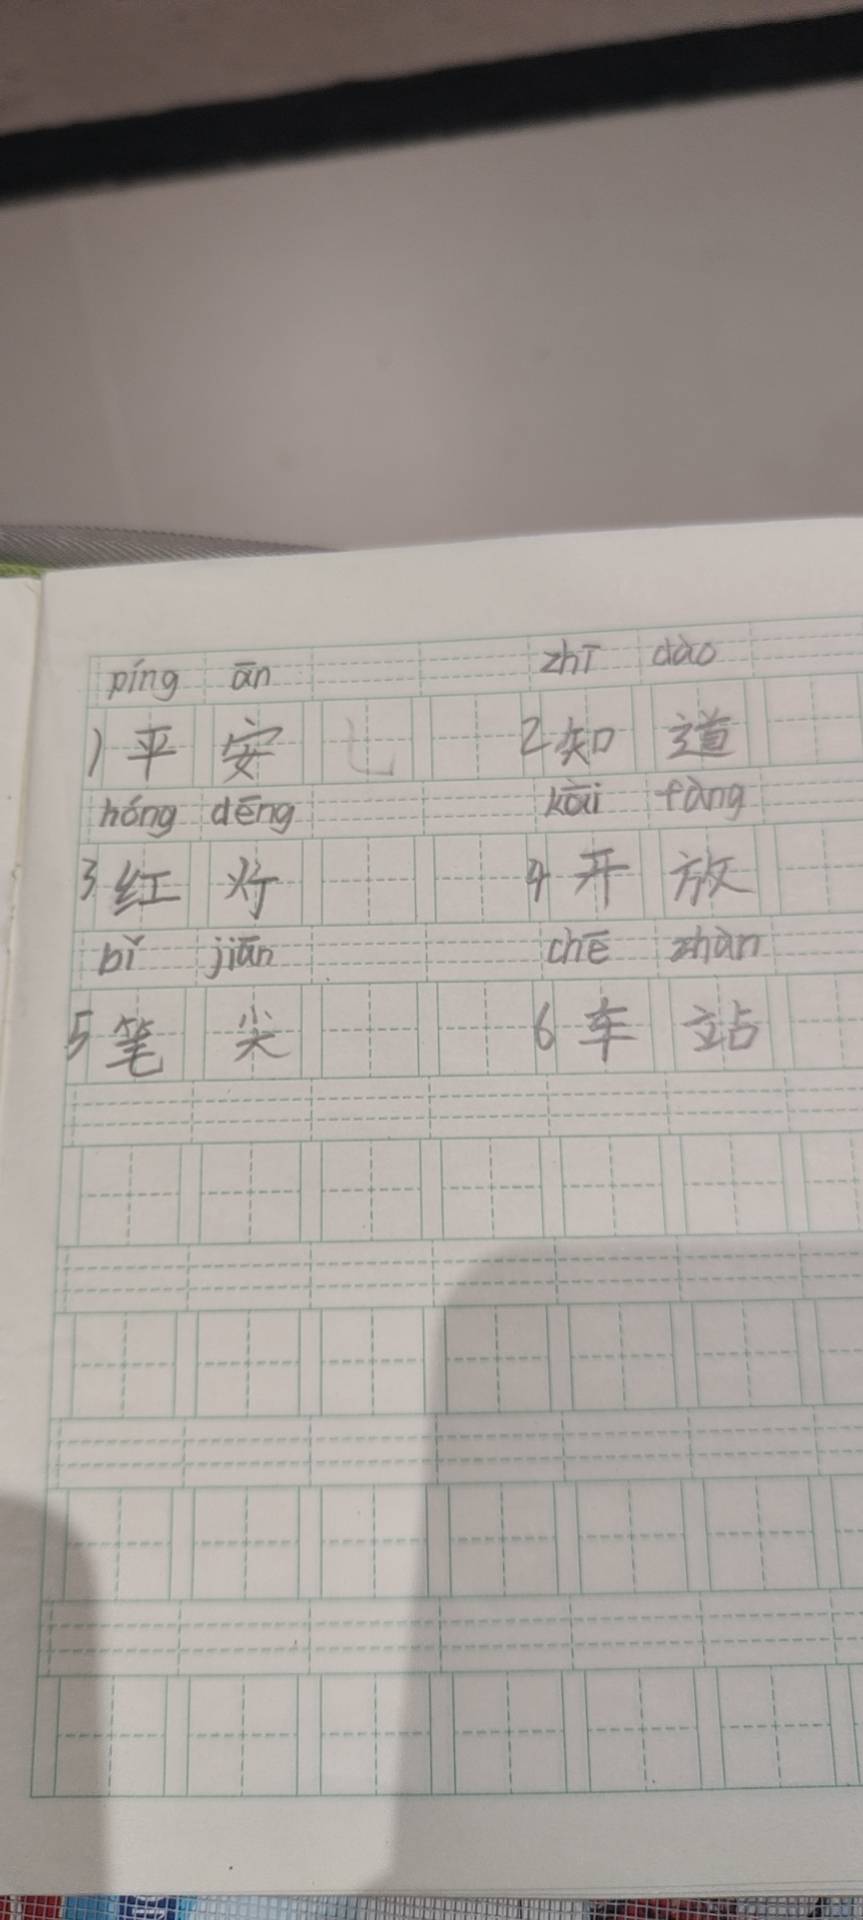 píng ān zhī dào
1平安乚 2知道
hóng dēng kāi fàng
3红灯 4开放
bǐ jiān chē zhàn
5笔尖 6车站